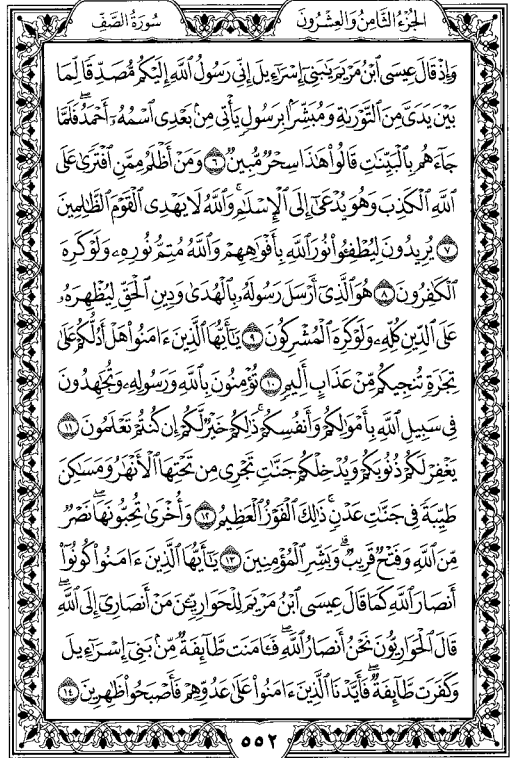 الجزء الثامن والعشرون
سورة الصف
وَإِذْ قَالَ عِيسَى ٱبْنُ مَرْيَمَ يَٰبَنِىٓ إِسْرَٰٓءِيلَ إِنِّى رَسُولُ ٱللَّهِ إِلَيْكُم مُّصَدِّقًا لِّمَا
بَيْنَ يَدَىَّ مِنَ ٱلتَّوْرَىٰةِ وَمُبَشِّرًۢا بِرَسُولٍ يَأْتِى مِنۢ بَعْدِى ٱسْمُهُۥٓ أَحْمَدُ ۖ فَلَمَّا
جَآءَهُم بِٱلْبَيِّنَٰتِ قَالُوا۟ هَٰذَا سِحْرٌ مُّبِينٌ ٦ وَمَنْ أَظْلَمُ مِمَّنِ ٱفْتَرَىٰ عَلَى
ٱللَّهِ ٱلْكَذِبَ وَهُوَ يُدْعَىٰٓ إِلَى ٱلْإِسْلَٰمِ ۚ وَٱللَّهُ لَا يَهْدِى ٱلْقَوْمَ ٱلظَّٰلِمِينَ
٧ يُرِيدُونَ لِيُطْفِـُٔوا۟ نُورَ ٱللَّهِ بِأَفْوَٰهِهِمْ وَٱللَّهُ مُتِمُّ نُورِهِۦ وَلَوْ كَرِهَ
ٱلْكَٰفِرُونَ ٨ هُوَ ٱلَّذِىٓ أَرْسَلَ رَسُولَهُۥ بِٱلْهُدَىٰ وَدِينِ ٱلْحَقِّ لِيُظْهِرَهُۥ
عَلَى ٱلدِّينِ كُلِّهِۦ وَلَوْ كَرِهَ ٱلْمُشْرِكُونَ ٩ يَٰٓأَيُّهَا ٱلَّذِينَ ءَامَنُوا۟ هَلْ أَدُلُّكُمْ عَلَىٰ
تِجَٰرَةٍ تُنجِيكُم مِّنْ عَذَابٍ أَلِيمٍ ١٠ تُؤْمِنُونَ بِٱللَّهِ وَرَسُولِهِۦ وَتُجَٰهِدُونَ
فِى سَبِيلِ ٱللَّهِ بِأَمْوَٰلِكُمْ وَأَنفُسِكُمْ ۚ ذَٰلِكُمْ خَيْرٌ لَّكُمْ إِن كُنتُمْ تَعْلَمُونَ ١١
يَغْفِرْ لَكُمْ ذُنُوبَكُمْ وَيُدْخِلْكُمْ جَنَّٰتٍ تَجْرِى مِن تَحْتِهَا ٱلْأَنْهَٰرُ وَمَسَٰكِنَ
طَيِّبَةً فِى جَنَّٰتِ عَدْنٍ ۚ ذَٰلِكَ ٱلْفَوْزُ ٱلْعَظِيمُ ١٢ وَأُخْرَىٰ تُحِبُّونَهَا ۖ نَصْرٌ
مِّنَ ٱللَّهِ وَفَتْحٌ قَرِيبٌ ۗ وَبَشِّرِ ٱلْمُؤْمِنِينَ ١٣ يَٰٓأَيُّهَا ٱلَّذِينَ ءَامَنُوا۟ كُونُوٓا۟
أَنصَارَ ٱللَّهِ كَمَا قَالَ عِيسَى ٱبْنُ مَرْيَمَ لِلْحَوَارِيِّۦنَ مَنْ أَنصَارِىٓ إِلَى ٱللَّهِ ۖ
قَالَ ٱلْحَوَارِيُّونَ نَحْنُ أَنصَارُ ٱللَّهِ ۖ فَـَٔامَنَت طَّآئِفَةٌ مِّنۢ بَنِىٓ إِسْرَٰٓءِيلَ
وَكَفَرَت طَّآئِفَةٌ ۖ فَأَيَّدْنَا ٱلَّذِينَ ءَامَنُوا۟ عَلَىٰ عَدُوِّهِمْ فَأَصْبَحُوا۟ ظَٰهِرِينَ ١٤
٥٥٢